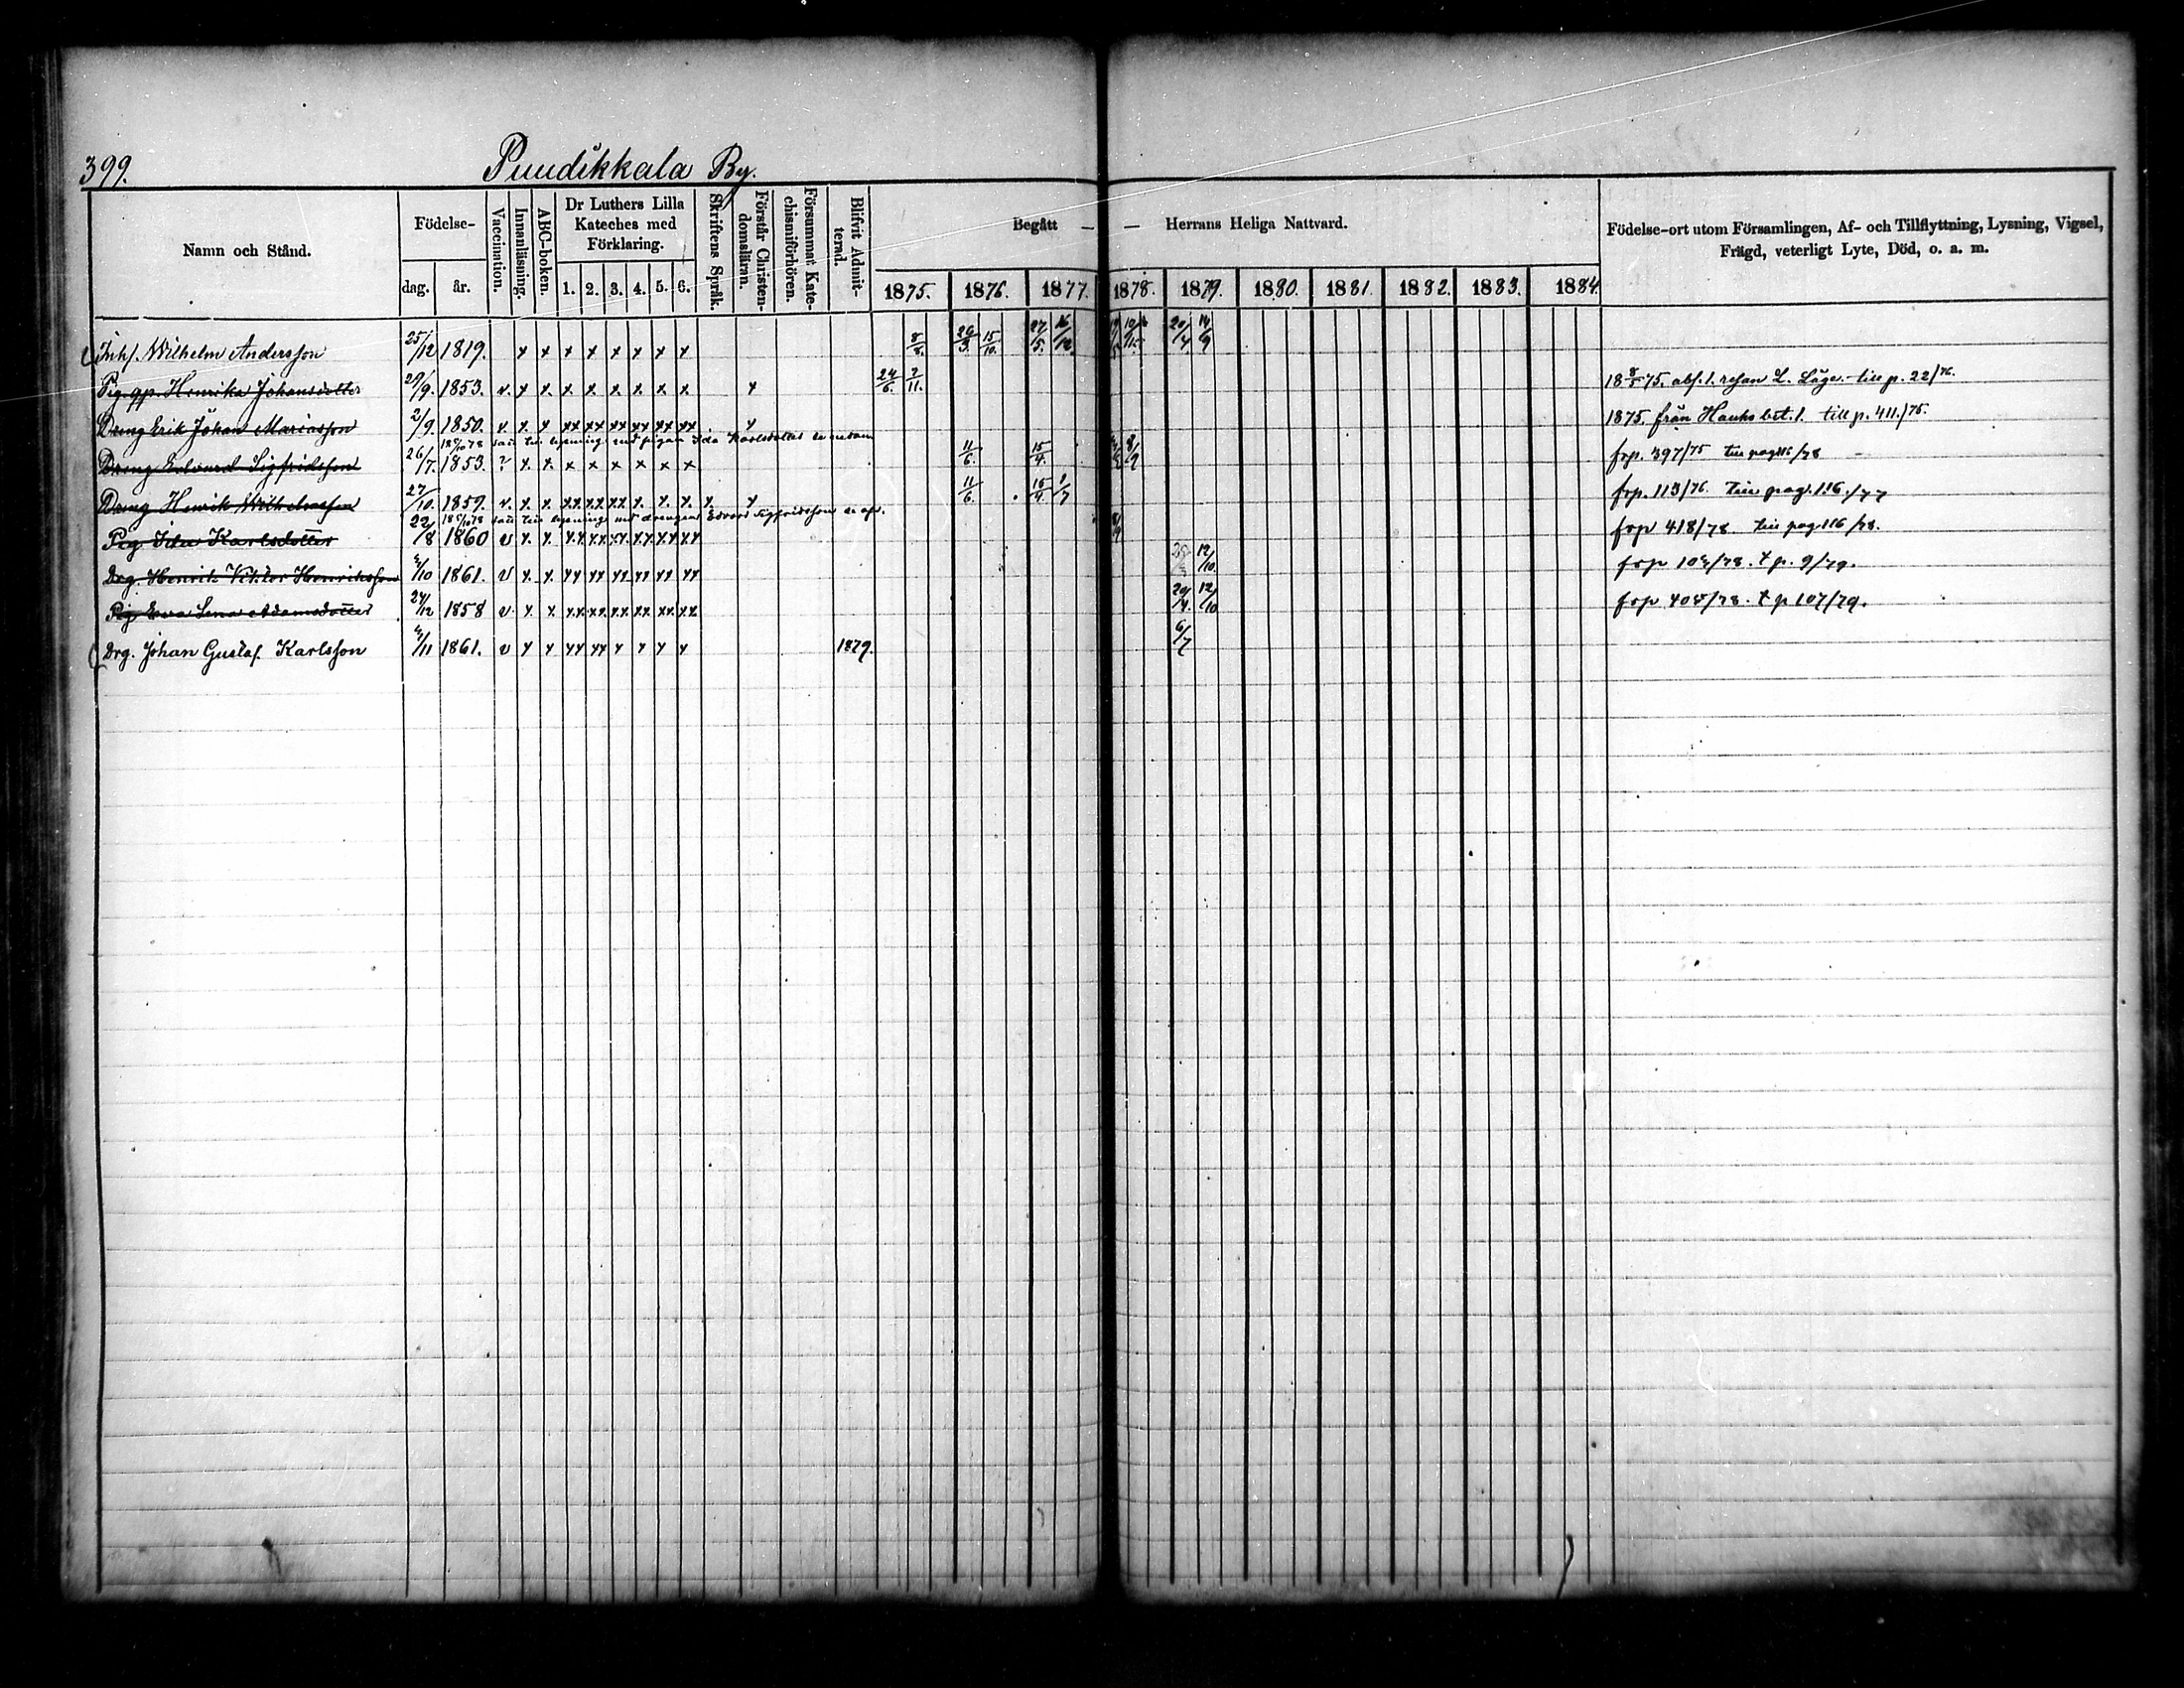 399. Puudikkala By.
Namn och Stånd. Födelse- dag. år. Vaccination. Innanläsning. ABC-boken. Dr Luthers Lilla Kateches med Förklaring. 1. 2. 3. 4. 5. 6. Skriftens Språk. Förstår Christendomsläran. Försummat Katechismiförhören. Blifvit Admitterad. Begått — — Herrans Heliga Nattvard. Födelse-ort utom Församlingen, Af- och Tillflyttning, Lysning, Vigsel, Frägd, veterligt Lyte, Död, o. a. m.
1875. 1876. 1877. 1878. 1879. 1880. 1881. 1882. 1883. 1884.
Inh. Wilhelm Andersson 25/12 1819. x x x x x x x x 8/8. 29/3. 15/10. 27/5. 16/12. 20/4 14/9
Pig. qp. Henrika Johansdotter 29/9. 1853. v. x x. x. x. x. x. x. x. x 24/6. 7/11. 18 8/8 75. abs. 1. resan L. Läge. till p. 22/76.
Dreng Erik Johan Mariasson 2/9. 1850. v. x. x xx xx xx xx xx xx x 1875. från Hauho bet. 1. till p. 411./75.
18 /10 78 till lysning med pigan Ida Karlsdotter se nedan
Dreng Edvard Sigfridsson 26/7. 1853. ? x. x. x x x x x x 11/6. 15/4. 8/9 frp. 397/75 till pag 116/78
Dreng Henrik Wilhelmsson 27/10. 1859. v. x. x. xx xx xx x. x. x. x. x 11/6. 15/4. 1/7 frp. 113/76. till pag. 116./77
18 /10 78 till lysning med drengen Edvard Sigfridsson se ofv.
Pig. Ida Karlsdotter 22/8 1860 v x. x. xx xx xx xx xx xx 8/9 frp 418/78 till pag 116/78.
Drg. Henrik Viktor Henriksson /10 1861. v x. x. xx xx xx xx xx xx 12/10. frp 108/78. t p. 9/79.
Pig Eva Lena Adamsdotter 24/12 1858 v. x x. xx xx xx xx xx xx 20/4. 12/10 frp 405/78. t p 107/79.
Drg. Johan Gustaf Karlsson /11 1861. v x x xx xx x x x x 1879. 6/7